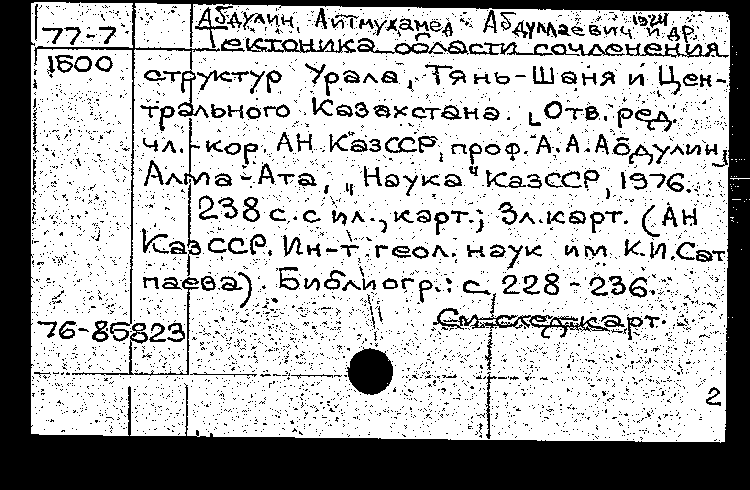 Абдулин, Айтмухамед Абдуллаевич и др. 1924
77-7
Тектоника области сочленения
1500
структур Урала, Тянь-Шаня и Цен-
трального Казахстана. [Отв. ред.
чл.-кор. АН КазССР, проф. А.А.Абдулин]
Алма-Ата, "Наука" КазССР, 1976.
238 с. с ил., карт.; 3л.карт. (АН
КазССР. Ин-т геол. наук им. К.И.Сат
паева). Библиогр.: с. 228-236.
См. след. карт.
76-85823
2